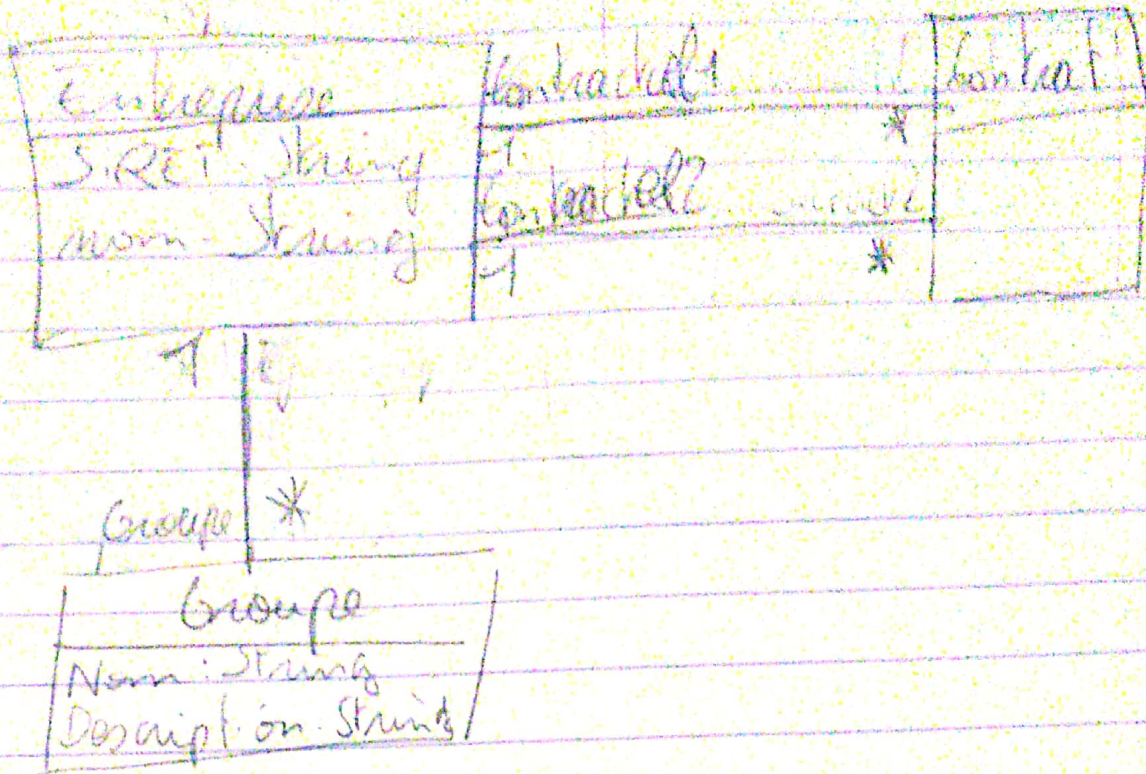 Entreprise
SIRET String
nom - String
Contractuel1
*
1
Contractuel2
*
1
Contrat
1
Groupe
*
Groupe
Nom: String
Description - String